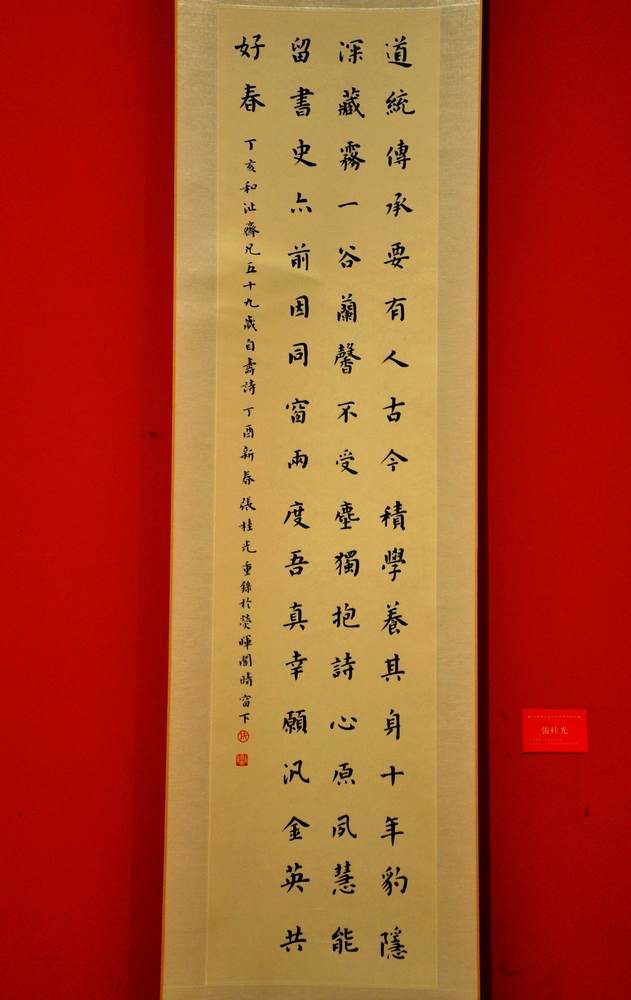 道統傳承要有人古今積學養其身十年豹隱
深藏霧一谷蘭馨不受塵獨抱詩心原夙慧能
留書史亦前因同窗兩度吾真幸願汎金英共
好春 丁亥和沚齋兄五十九歲自壽詩丁酉新春張桂光重錄於瑩暉閣晴窗下
張桂光